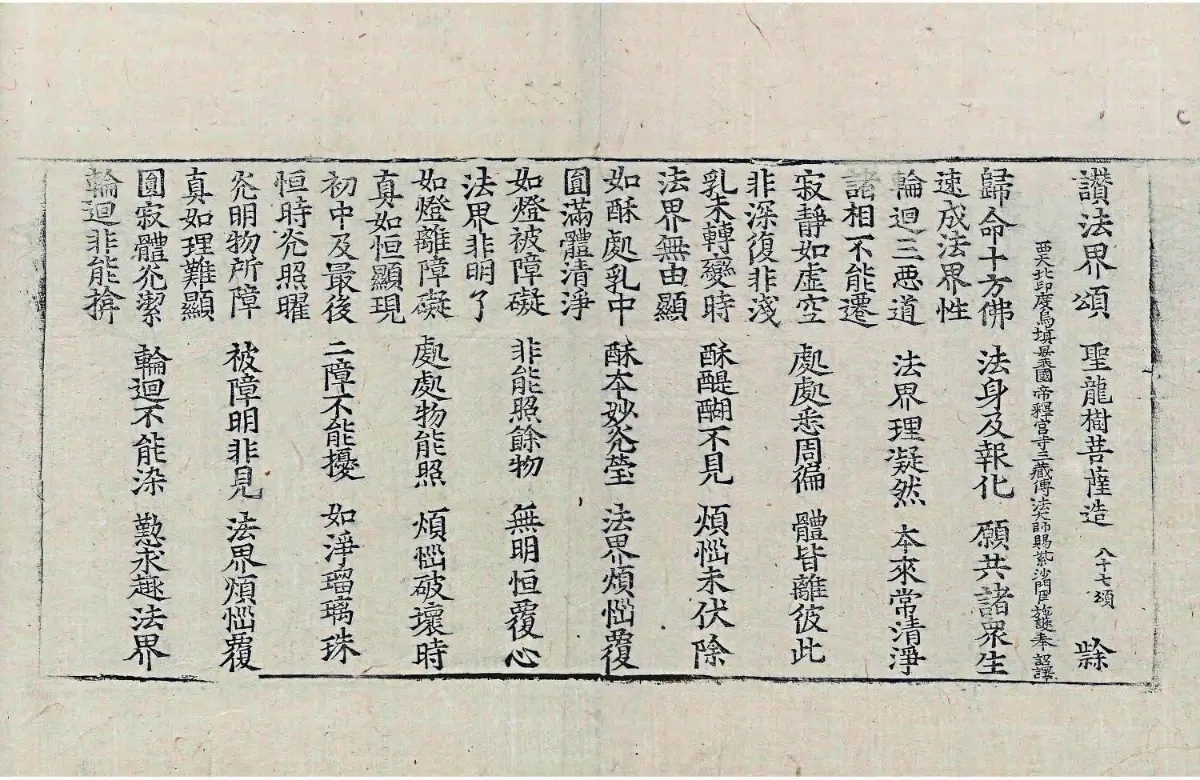 讚法界頌 聖龍樹菩薩造 八十七頌
西天北印度烏填曩國帝釋宮寺三藏傳法大師賜紫沙門臣施護奉 詔譯
歸命十方佛 法身及報化 願共諸衆生
速成法界性
輪迴三惡道 法界理凝然 夲來常清淨
諸相不能遷
寂靜如虛空 處處悉周徧 體皆離彼此
非深復非淺
乳未轉變時 酥醍醐不見 煩惱未伏除
法界無由顯
如酥處乳中 酥夲妙光瑩 法界煩惱覆
圓滿體清淨
如燈被障礙 非能照餘物 無明恒覆心
法界非明了
如燈離障礙 處處物能照 煩惱破壞時
真如恒顯現
初中及最後 二障不能擾 如淨瑠璃珠
恒時光照曜
光明物所障 被障明非見 法界煩惱覆
真如理難顯
圓寂體光潔 輪迴不能染 懃求趣法界
輪迴非能揜